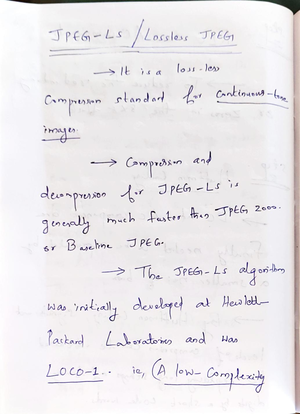 JPEG-LS / Lossless JPEG
→ It is a loss-less
Compression standard for continuous-tone
images.
→ Compression and
decompression for JPEG-LS is
generally much faster than JPEG 2000.
or Baseline JPEG.
→ The JPEG-LS algorithm
was initially developed at Hewlett-
Packard Laboratories and was
LOCO-1.. ie, (A low-Complexity